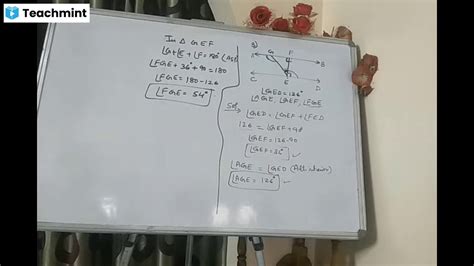 Teachmint
In Δ GEF
∠G+∠E+∠F=180°
∠FGE+36°+90=180
∠FGE=180-126
∠FGE=54°
G F
A B
C E D
∠GED=126°
∠AGE, ∠GEF, ∠FGE
∠GED=∠GEF+∠FED
126=∠GEF+90
∠GEF=126-90
∠GEF=36°
∠AGE=∠GED
∠AGE=126°